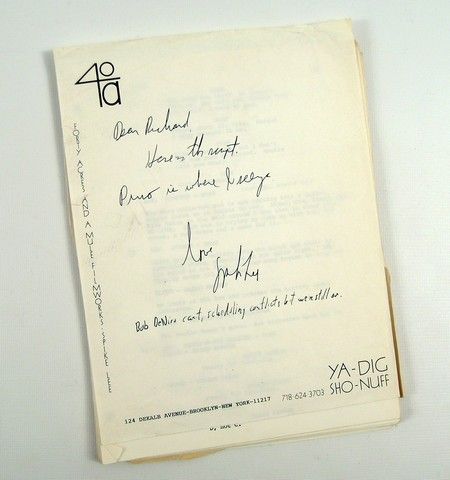 40a
FORTY ACRES AND A MULE FILMWORKS SPIKE LEE
Dear Richard,
Here's the script.
Pino is where I see ya
love
Spike Lee
Bob DeNiro can't, scheduling conflicts but we're still on.
YA-DIG
SHO-NUFF
124 DEKALB AVENUE-BROOKLYN-NEW YORK-11217 718-624-3703